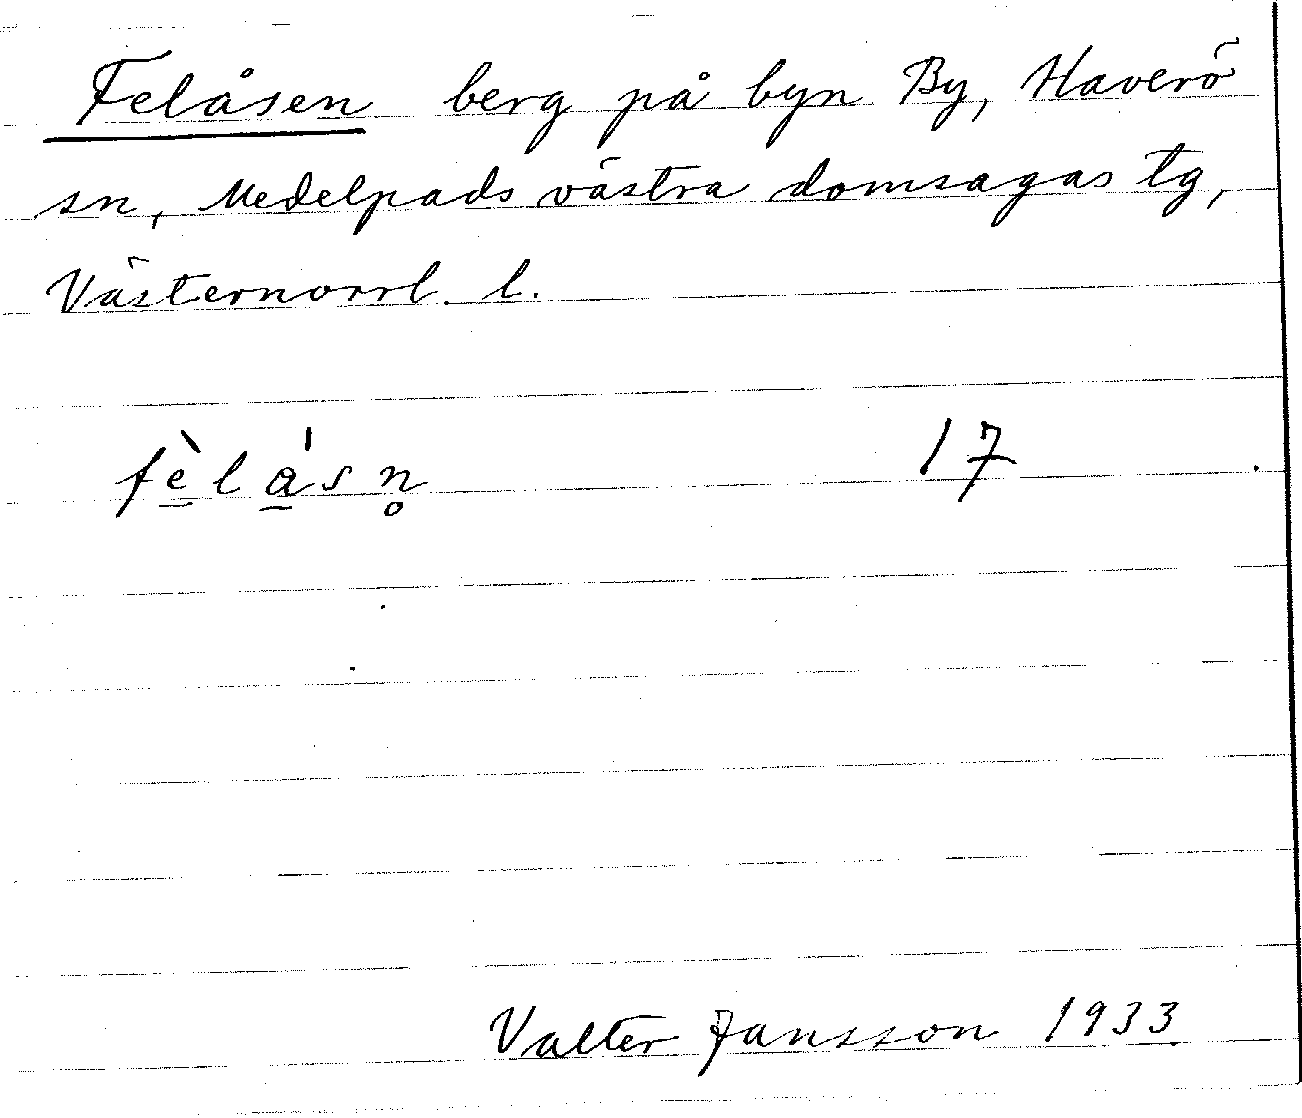 Felåsen berg på byn By, Haverö
sn, Medelpads västra domsagas tg,
Västernorrl. l.
fè̱lá̱sn̥ 17
Valter Jansson 1933